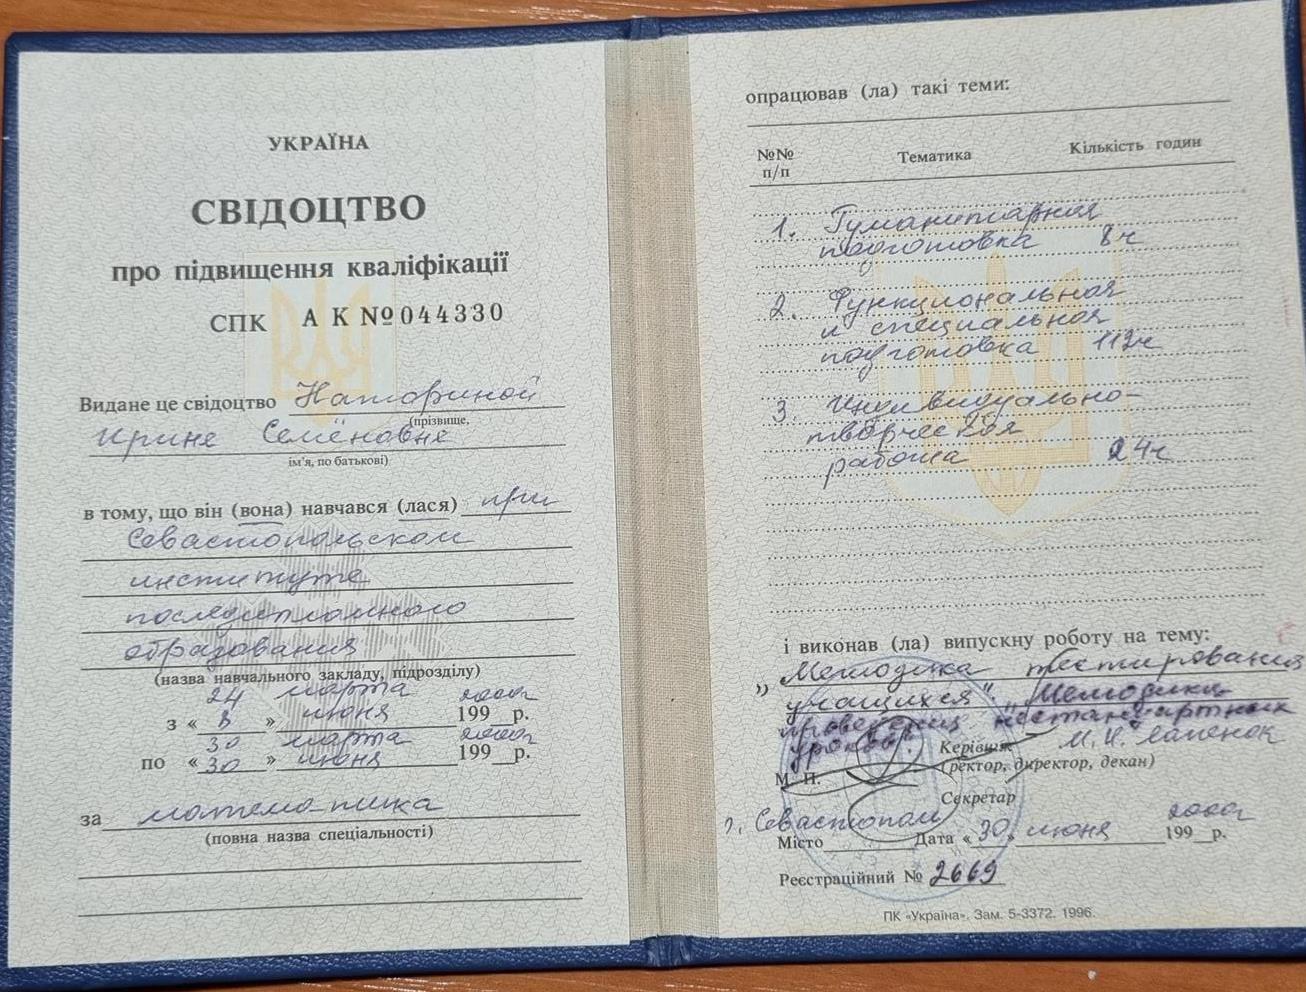 УКРАЇНА
СВІДОЦТВО
про підвищення кваліфікації
СПК АК №044330
Видане це свідоцтво Наториной
(прізвище,
Ирине Семёновне
ім'я, по батькові)
в тому, що він (вона) навчався (лася) при
Севастопольском
институте
последипломного
образования
(назва навчального закладу, підрозділу)
24 марта 2000г
з « 8 » июня 199 р.
30 марта 2000г
по « 30 » июня 199 р.
за математика
(повна назва спеціальності)
опрацював (ла) такі теми:
№№ Тематика Кількість годин
п/п
1. Гуманитарная
подготовка 8ч
2. Функциональная
и специальная
подготовка 112ч
3. Индивидуально-
творческая
работа 24ч
і виконав (ла) випускну роботу на тему:
„Методика тестирования
учащихся". „Методика
проведения нестандартных
уроков".
Керівник
М. П. (ректор, директор, декан)
Секретар
г. Севастополь 2000г
Місто Дата « 30 » июня 199 р.
Реєстраційний № 2669
ПК «Україна». Зам. 5-3372. 1996.